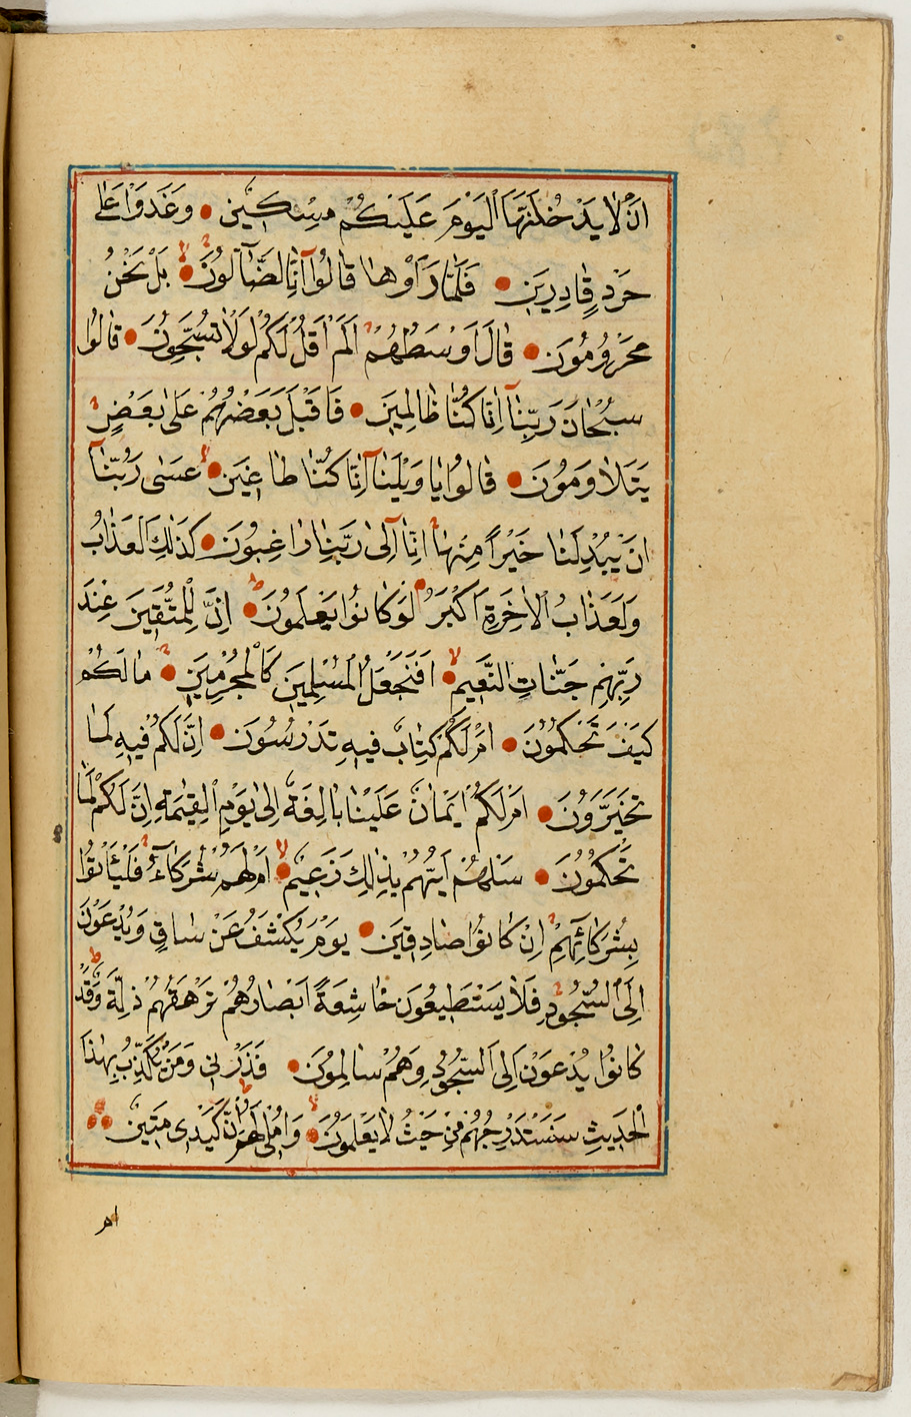 اَنْ لَا يَدْخُلَنَّهَا الْيَوْمَ عَلَيْكُمْ مِسْكِينٌ وَغَدَوْا عَلٰى
حَرْدٍ قَادِرِينَ فَلَمَّا رَاَوْهَا قَالُوا اِنَّا لَضَٓالُّونَ بَلْ نَحْنُ
مَحْرُومُونَ قَالَ اَوْسَطُهُمْ اَلَمْ اَقُلْ لَكُمْ لَوْلَا تُسَبِّحُونَ قَالُوا
سُبْحَانَ رَبِّنَٓا اِنَّا كُنَّا ظَالِمِينَ فَاَقْبَلَ بَعْضُهُمْ عَلٰى بَعْضٍ
يَتَلَاوَمُونَ قَالُوا يَا وَيْلَنَٓا اِنَّا كُنَّا طَاغِينَ عَسٰى رَبُّنَٓا
اَنْ يُبْدِلَنَا خَيْرًا مِنْهَٓا اِنَّٓا اِلٰى رَبِّنَا رَاغِبُونَ كَذٰلِكَ الْعَذَابُ
وَلَعَذَابُ الْاٰخِرَةِ اَكْبَرُ لَوْ كَانُوا يَعْلَمُونَ اِنَّ لِلْمُتَّقِينَ عِنْدَ
رَبِّهِمْ جَنَّاتِ النَّعِيمِ اَفَنَجْعَلُ الْمُسْلِمِينَ كَالْمُجْرِمِينَ مَا لَكُمْ
كَيْفَ تَحْكُمُونَ اَمْ لَكُمْ كِتَابٌ فِيهِ تَدْرُسُونَ اِنَّ لَكُمْ فِيهِ لَمَا
تَخَيَّرُونَ اَمْ لَكُمْ اَيْمَانٌ عَلَيْنَا بَالِغَةٌ اِلٰى يَوْمِ الْقِيٰمَةِ اِنَّ لَكُمْ لَمَا
تَحْكُمُونَ سَلْهُمْ اَيُّهُمْ بِذٰلِكَ زَعِيمٌ اَمْ لَهُمْ شُرَكَٓاءُ فَلْيَأْتُوا
بِشُرَكَٓائِهِمْ اِنْ كَانُوا صَادِقِينَ يَوْمَ يُكْشَفُ عَنْ سَاقٍ وَيُدْعَوْنَ
اِلَى السُّجُودِ فَلَا يَسْتَطِيعُونَ خَاشِعَةً اَبْصَارُهُمْ تَرْهَقُهُمْ ذِلَّةٌ وَقَدْ
كَانُوا يُدْعَوْنَ اِلَى السُّجُودِ وَهُمْ سَالِمُونَ فَذَرْنِي وَمَنْ يُكَذِّبُ بِهٰذَا
الْحَدِيثِ سَنَسْتَدْرِجُهُمْ مِنْ حَيْثُ لَا يَعْلَمُونَ وَاُمْلِي لَهُمْ اِنَّ كَيْدِي مَتِينٌ
ام